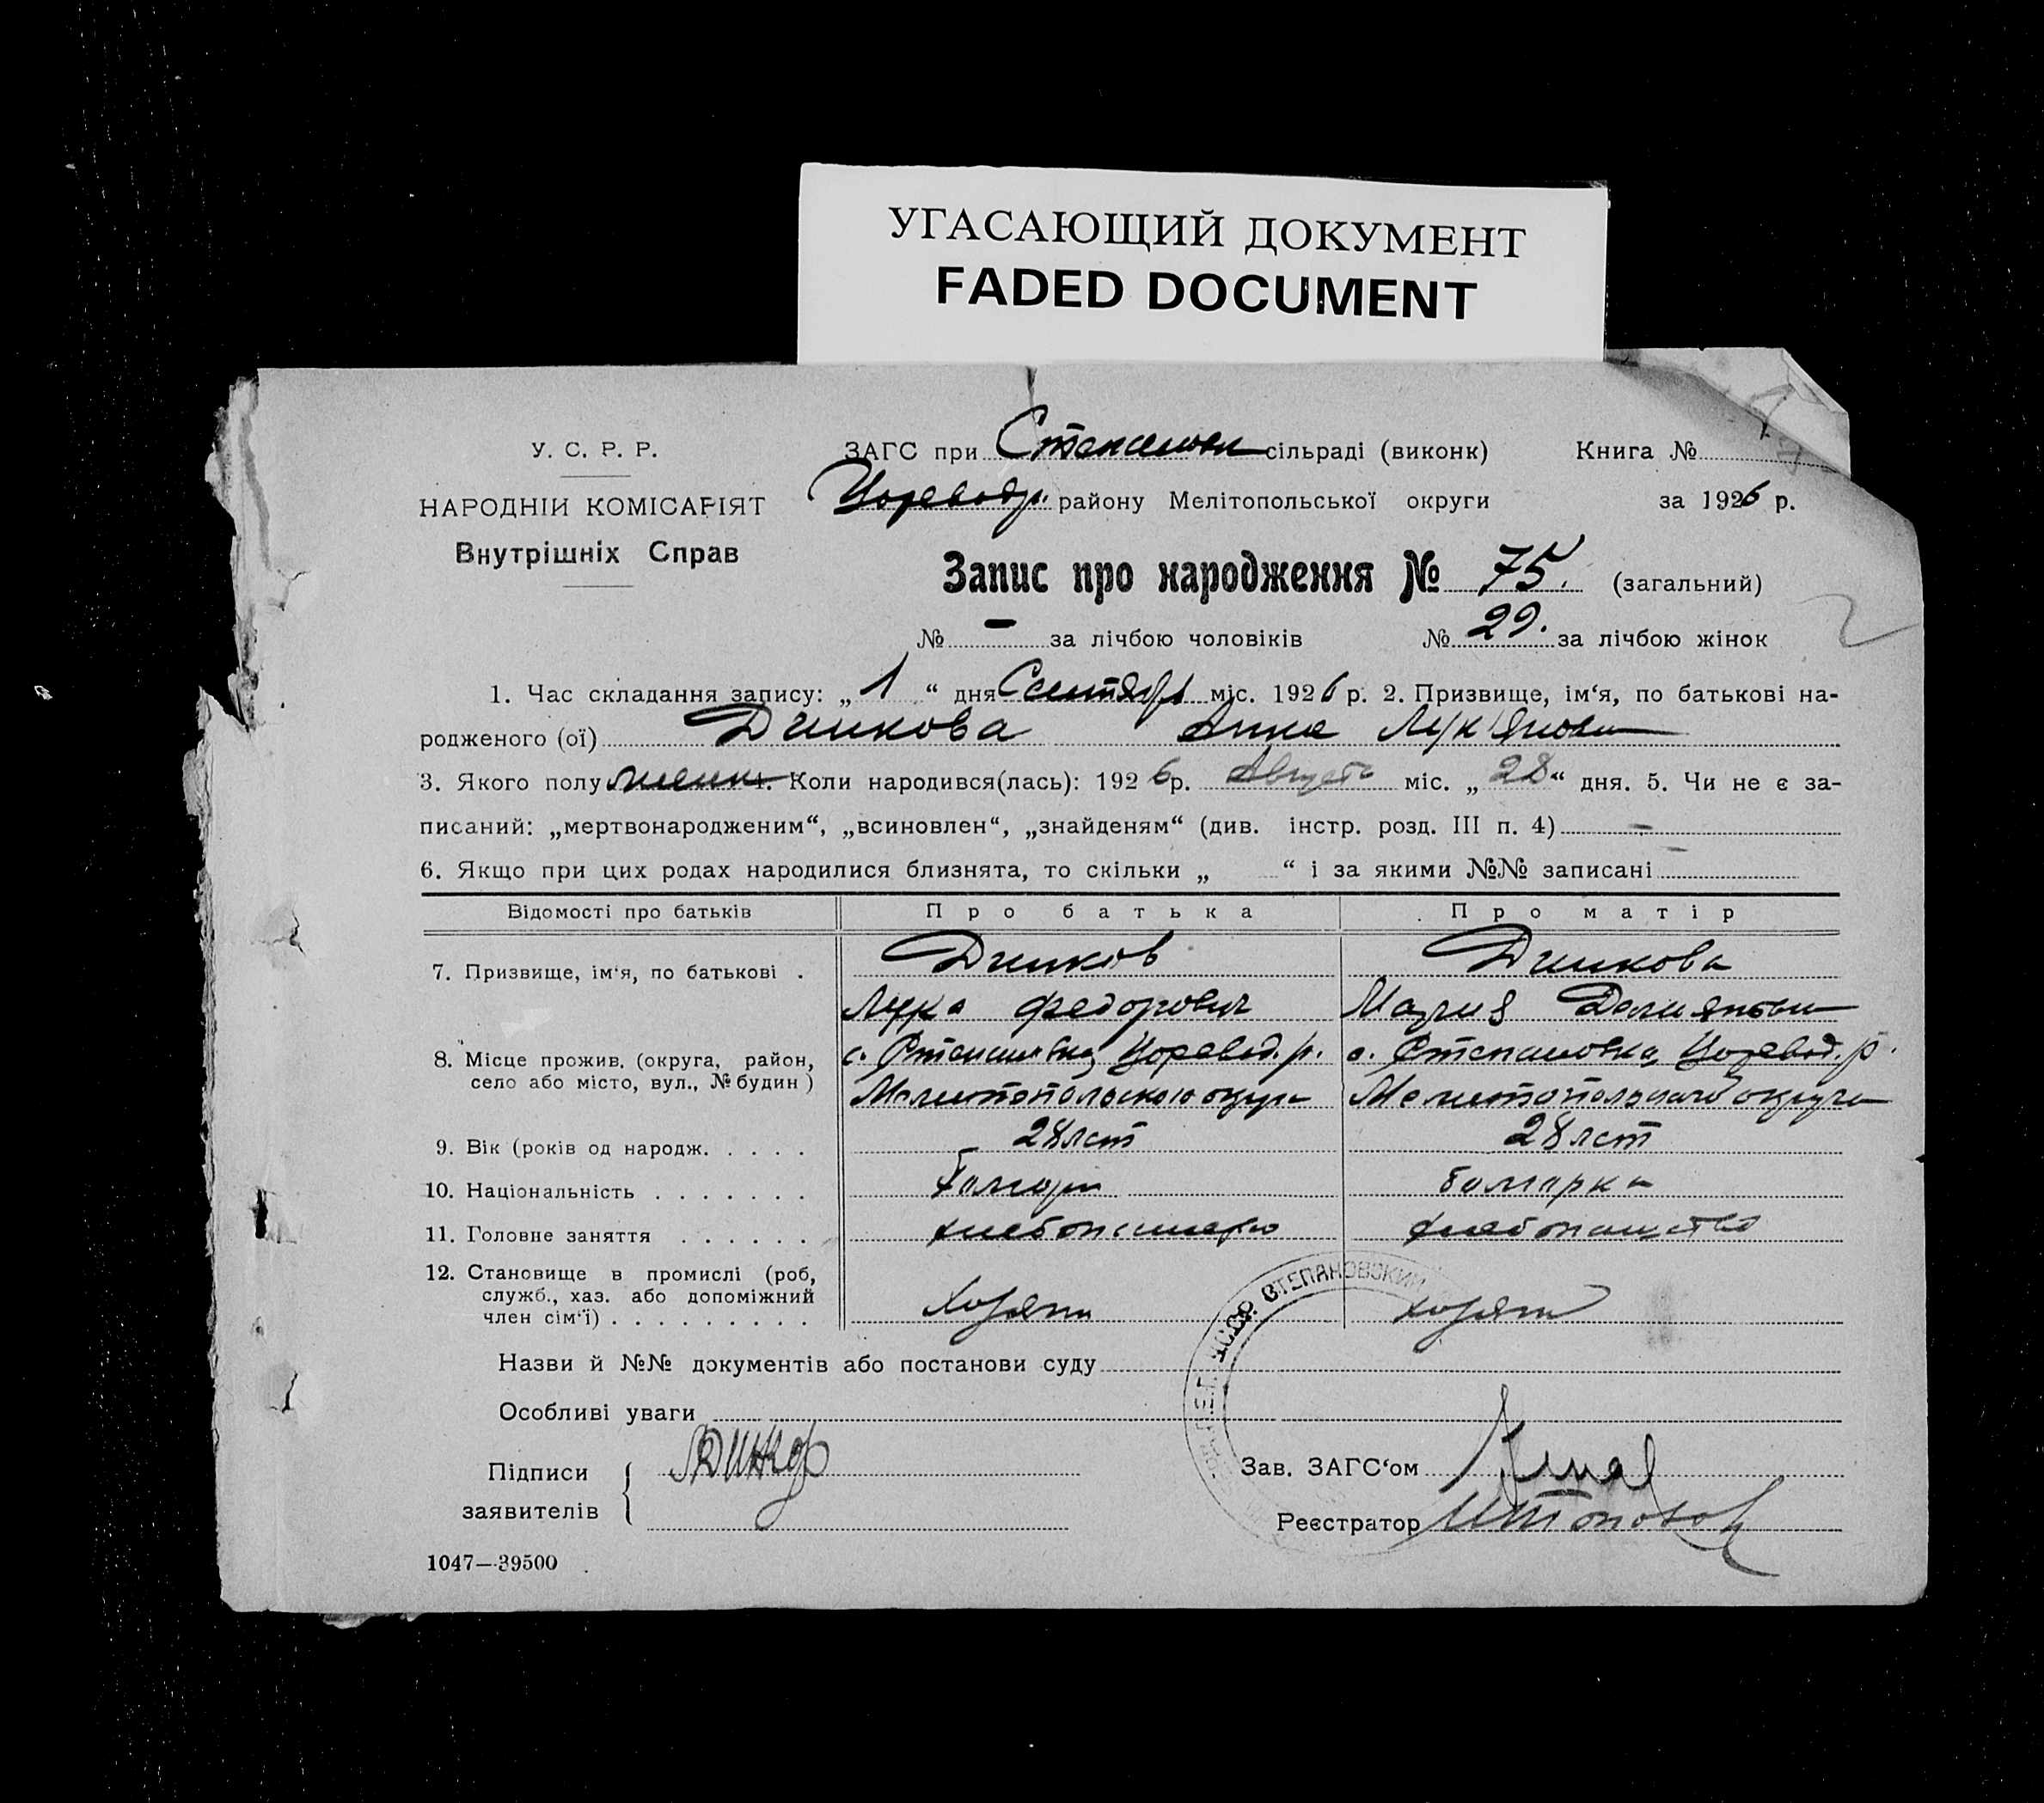 УГАСАЮЩИЙ ДОКУМЕНТ
FADED DOCUMENT
У. С. Р. Р.
НАРОДНІЙ КОМІСАРІЯТ
Внутрішніх Справ
ЗАГС при Степанов сільраді (виконк) Книга №
Цоревод. району Мелітопольської округи за 1926 р.
Запис про народження № 75. (загальний)
№ — за лічбою чоловіків № 29. за лічбою жінок
1. Час складання запису: „ 1 “ дня Сентября міс. 1926 р. 2. Призвище, ім‘я, по батькові на-
родженого (ої) Динкова Анна Лук'янов
3. Якого полу женск 4. Коли народився(лась): 1926 р. Августа міс. „ 28 “ дня. 5. Чи не є за-
писаний: „мертвонародженим“, „всиновлен“, „знайденям“ (див. інстр. розд. III п. 4) —
6. Якщо при цих родах народилися близнята, то скільки „ “ і за якими №№ записані
Відомості про батьків Про батька Про матір
7. Призвище, ім‘я, по батькові . Динков Динкова
Лука Федорович Мария Демьянов
8. Місце прожив. (округа, район, с. Степановка, Цоревод. р. с. Степановка, Цоревод. р.
село або місто, вул., № будин ) Мелитопольского округа Мелитопольского округа
9. Вік (років од народж. . . . . 28 лет 28 лет
10. Національність . . . . . . . болгарин болгарка
11. Головне заняття . . . . . . хлебопашество хлебопашество
12. Становище в промислі (роб,
служб., хаз. або допоміжний
член сім‘ї) . . . . . . . . . хозяин
Назви й №№ документів або постанови суду
Особливі уваги
УССР. СТЕПАНОВСКИЙ
Підписи ЛДинков Зав. ЗАГС‘ом
заявителів Реєстратор
1047—39500